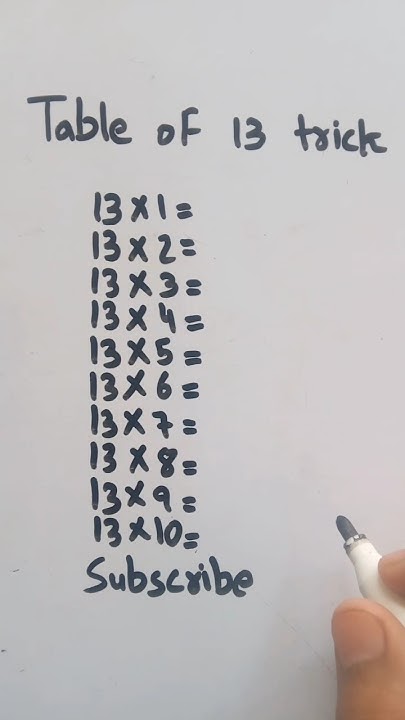 Table of 13 trick
13×1=
13×2=
13×3=
13×4=
13×5=
13×6=
13×7=
13×8=
13×9=
13×10=
Subscribe